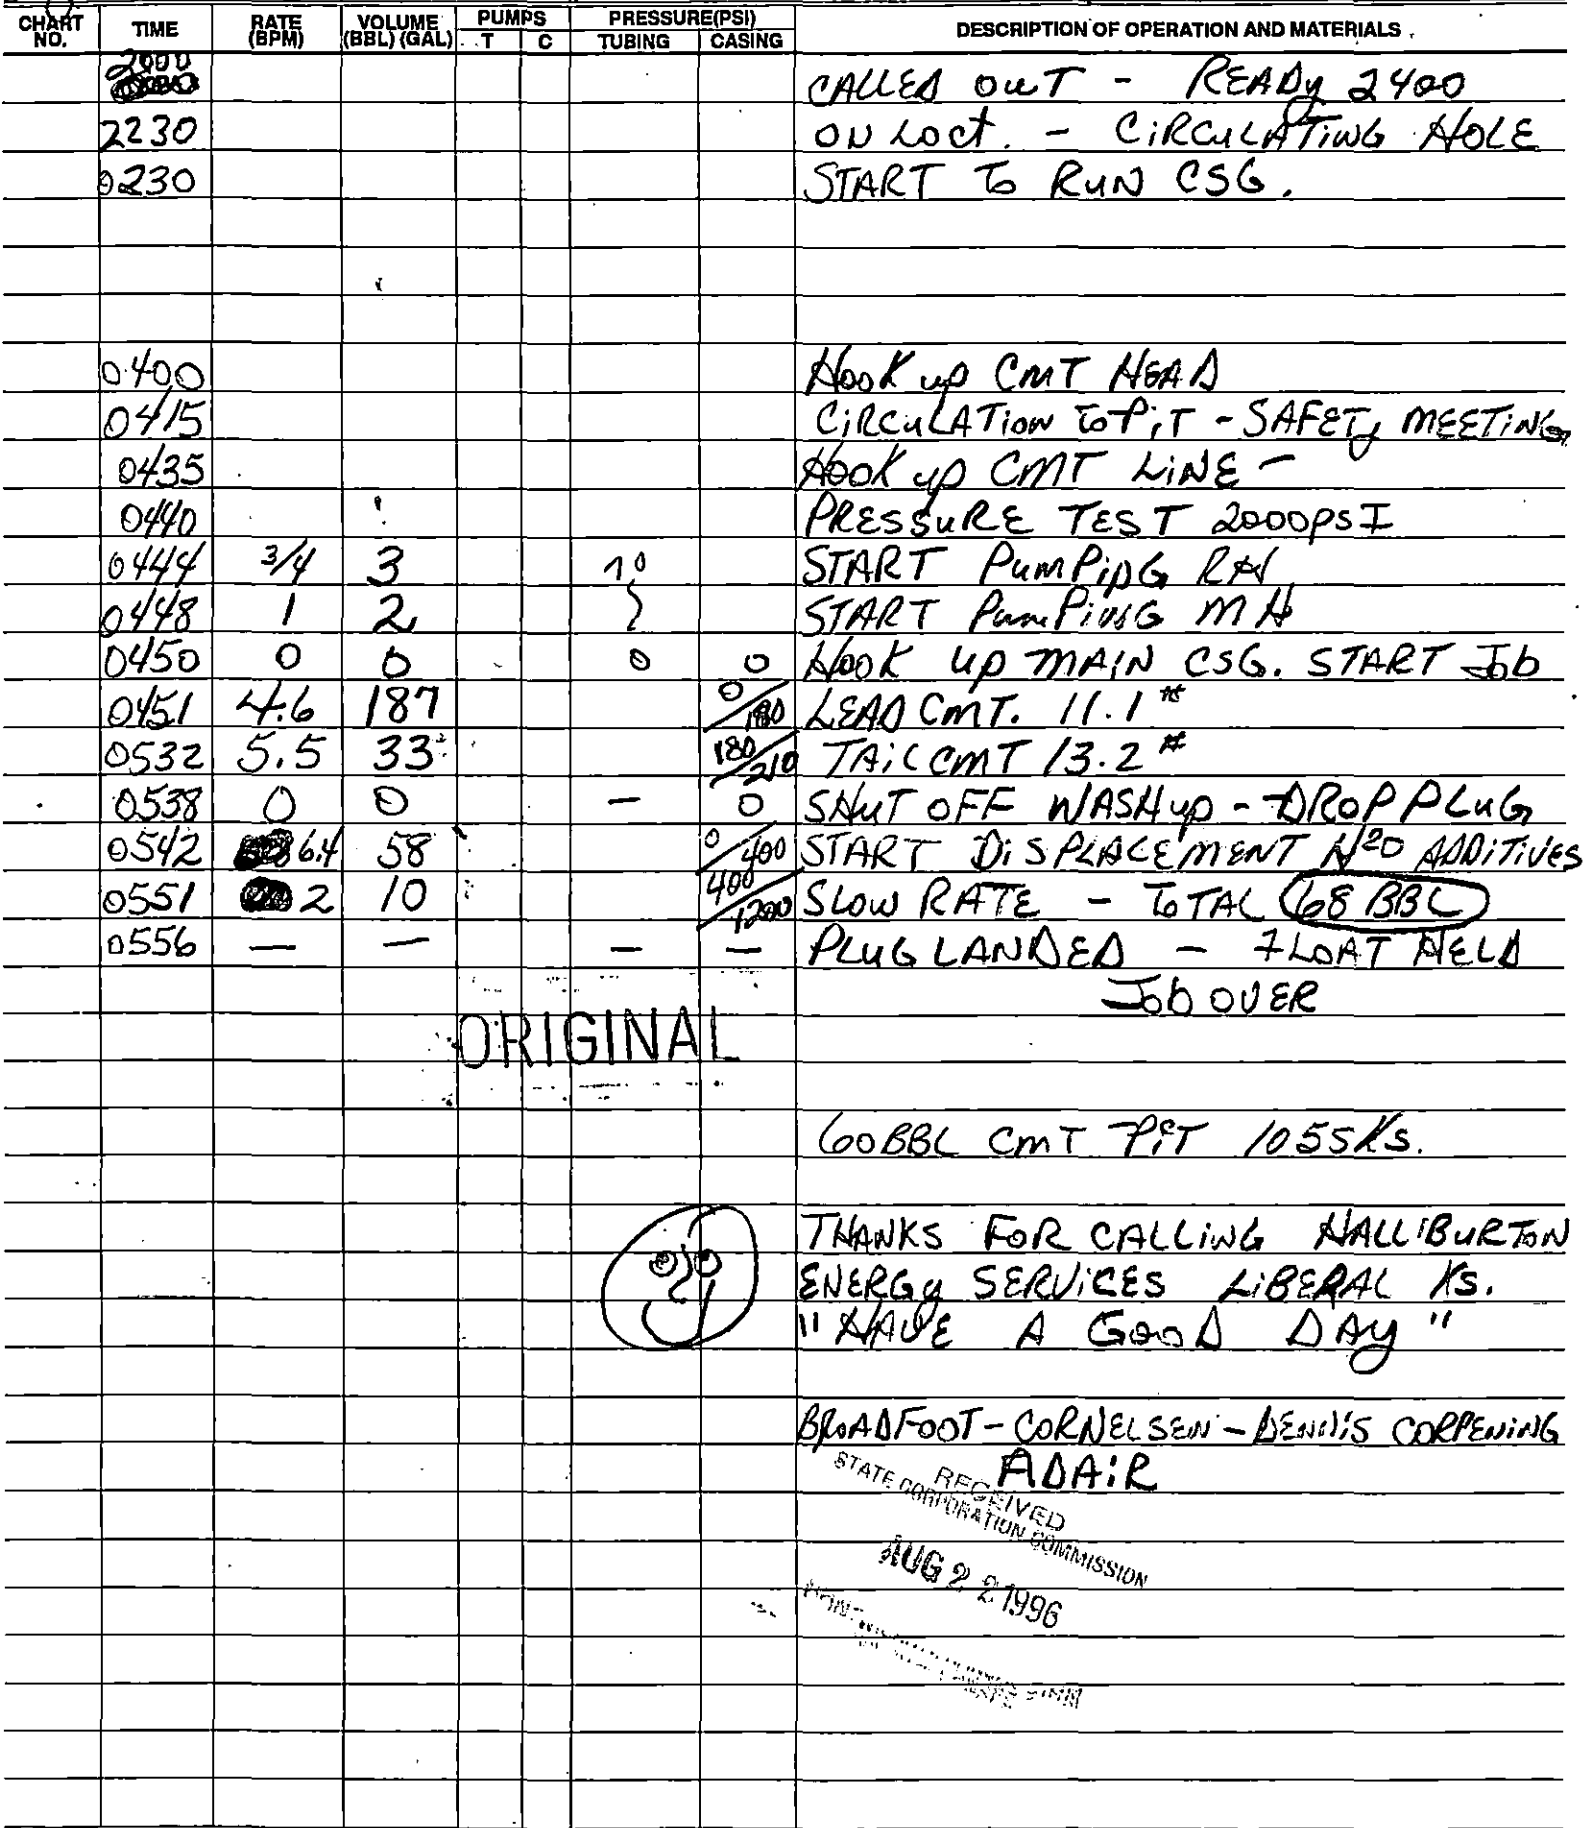 CHART NO. TIME RATE (BPM) VOLUME (BBL) (GAL) PUMPS T C PRESSURE(PSI) TUBING CASING DESCRIPTION OF OPERATION AND MATERIALS
2000 CALLED OUT - READy 2400
2230 ON Loct. - CiRCuLATiNG HOLE
0230 START To RUN CSG.
0400 HOOK up CMT HEAD
0415 CiRCuLATioN to PiT - SAFETy MEETiNG
0435 HOOK up CMT LiNE -
0440 PRESSuRE TEST 2000PSI
0444 3/4 3 10 START PumPiPG RH
0448 1 2 START PumPiNG MH
0450 0 0 0 0 HOOK up MAiN CSG. START Job
0451 4.6 187 0/180 LEAD CMT. 11.1 #
0532 5.5 33 180/210 TAiL CMT 13.2 #
0538 0 0 - 0 SHuT OFF WASHup - DROP PLuG
0542 6.4 58 0/400 START DiSPLACEMENT H2O ADDiTiVES
0551 2 10 400/1200 SLOW RATE - ToTAL 68 BBL
0556 - - - - PLuG LANDED - FLOAT HELD
Job OVER
ORIGINAL
60BBL CmT PiT 105SKs.
THANKS FOR CALLiNG HALLiBuRToN
ENERGy SERViCES LiBERAL Ks.
"HAVE A GooD DAy"
BRoADFOOT - CORNELSEN - DENNiS CORPENiNG
ADAiR
RECEIVED
STATE CORPORATION COMMISSION
AUG 2 2 1996